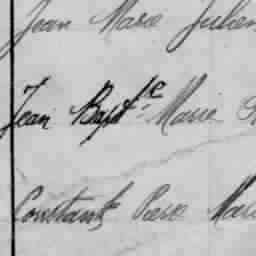 Jean Marie Julien
Jean Bapte Marie
Constant Pierre Mari